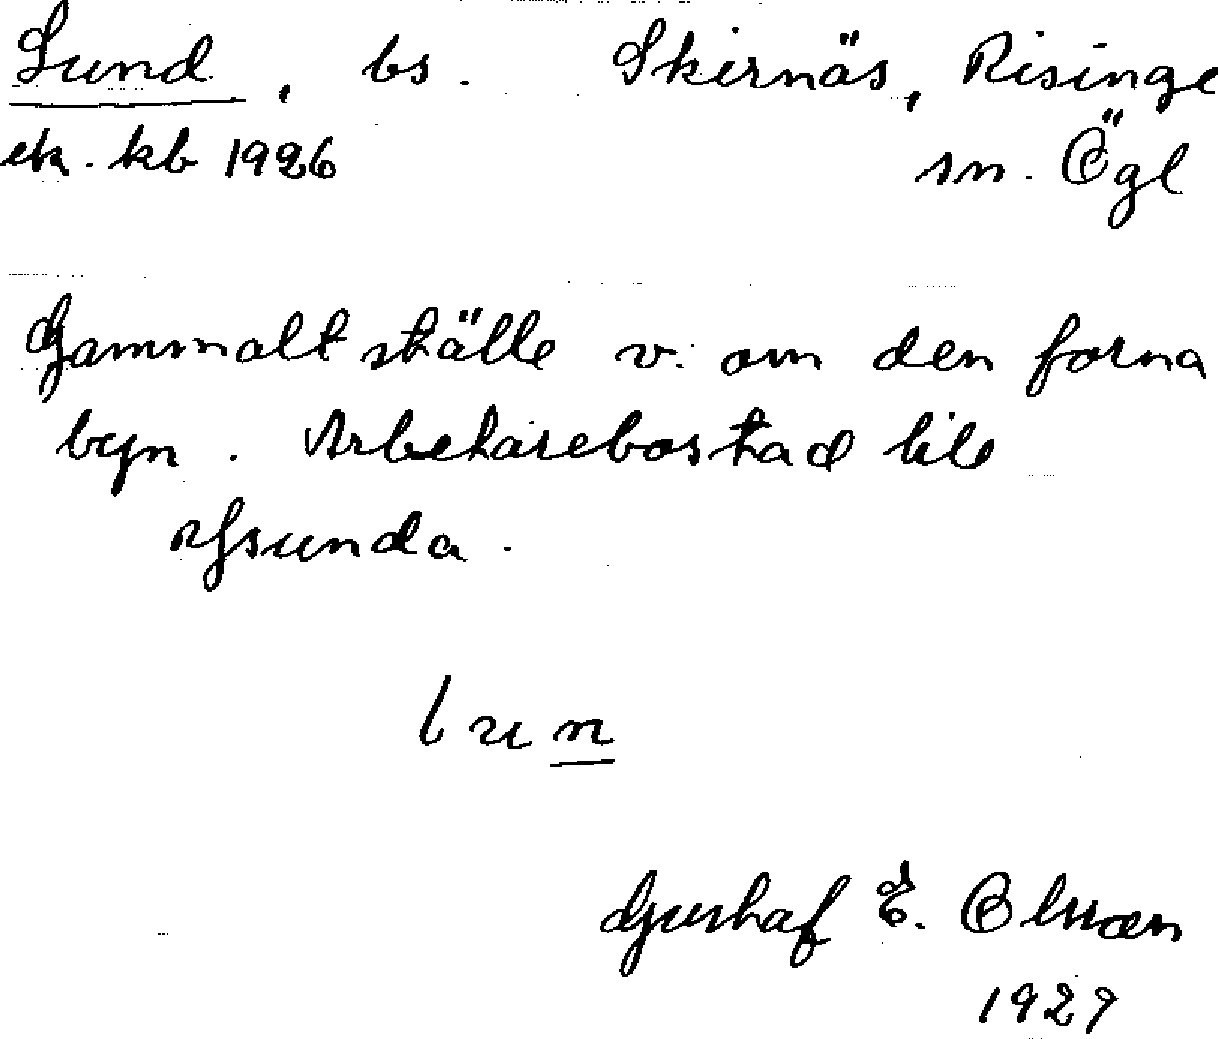 Lund, bs. Skirnäs, Risinge
ek. kb 1926 sn. Ögl
Gammalt ställe v. om den forna
byn. Arbetarebostad till
Ysunda.
l u n
Gustaf E. Olsson
1927